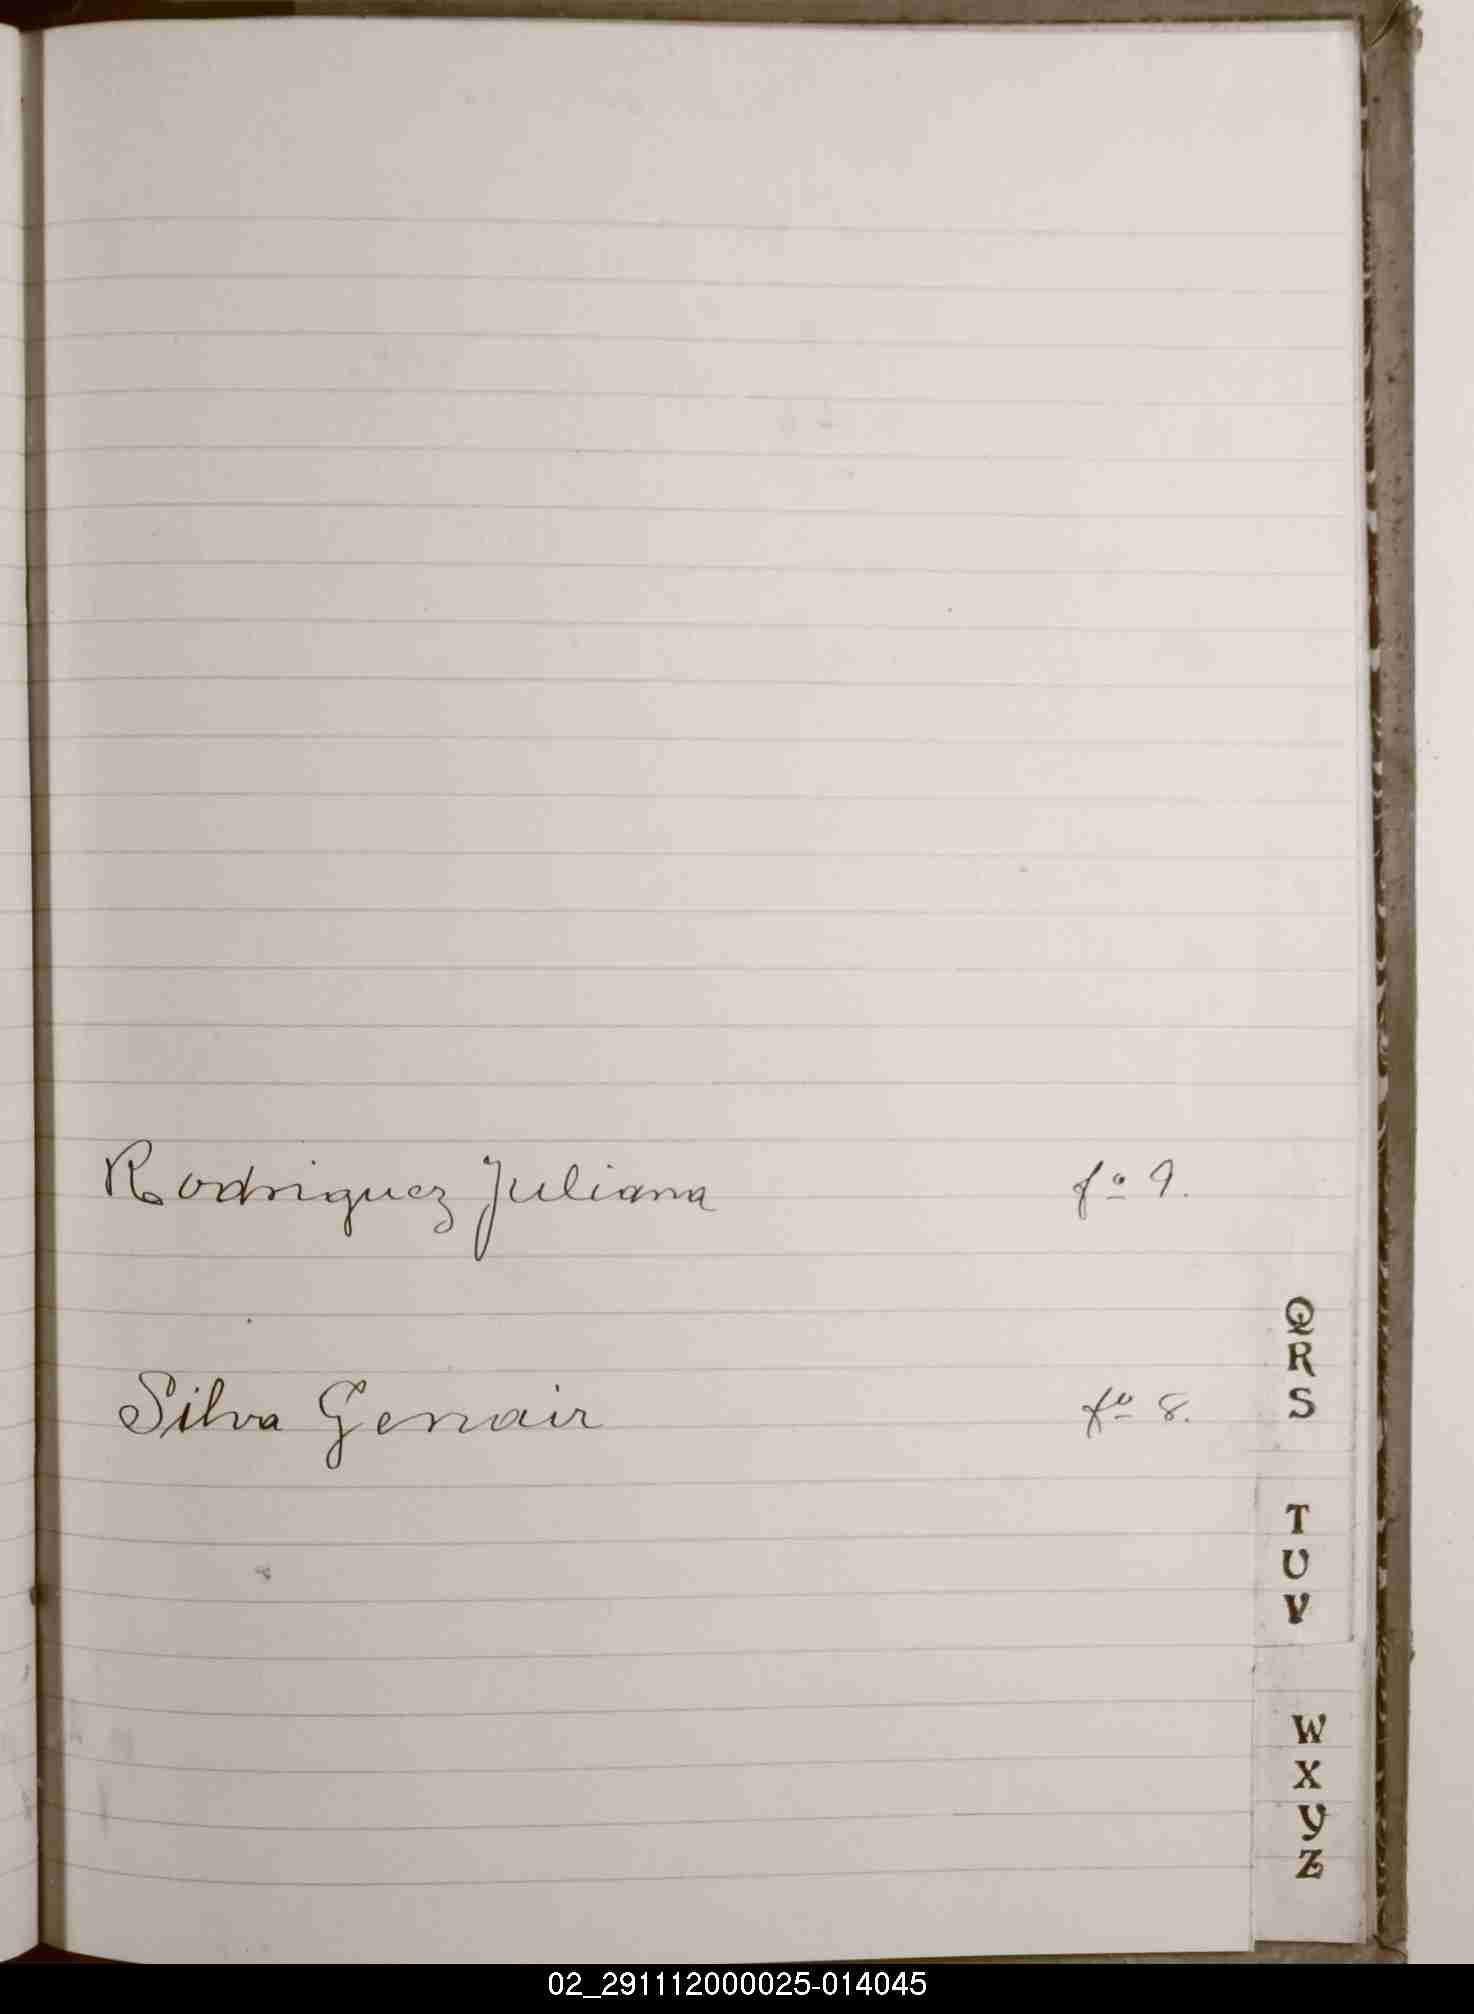 Rodriguez Juliana fº 9.
Silva Genair fº 8.
Q
R
S
T
U
V
W
X
Y
Z
02_291112000025-014045